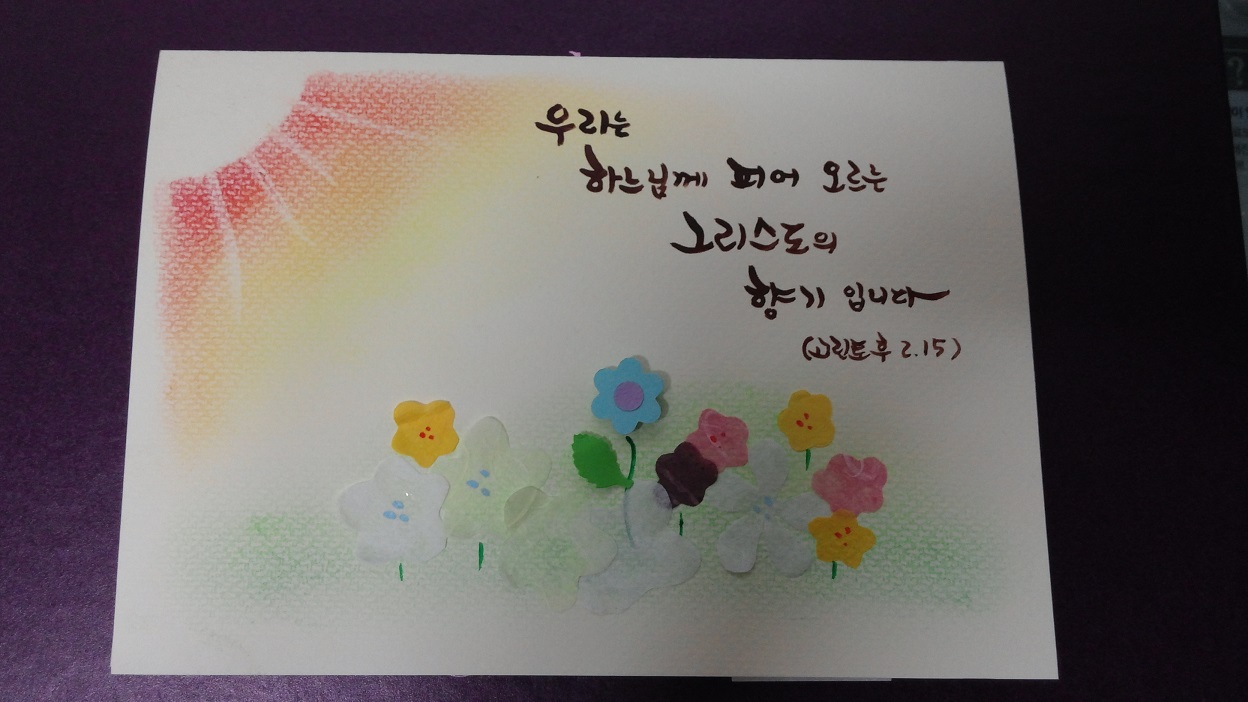 우리는
하느님께 피어 오르는
그리스도의
향기 입니다
(고린토후 2.15)